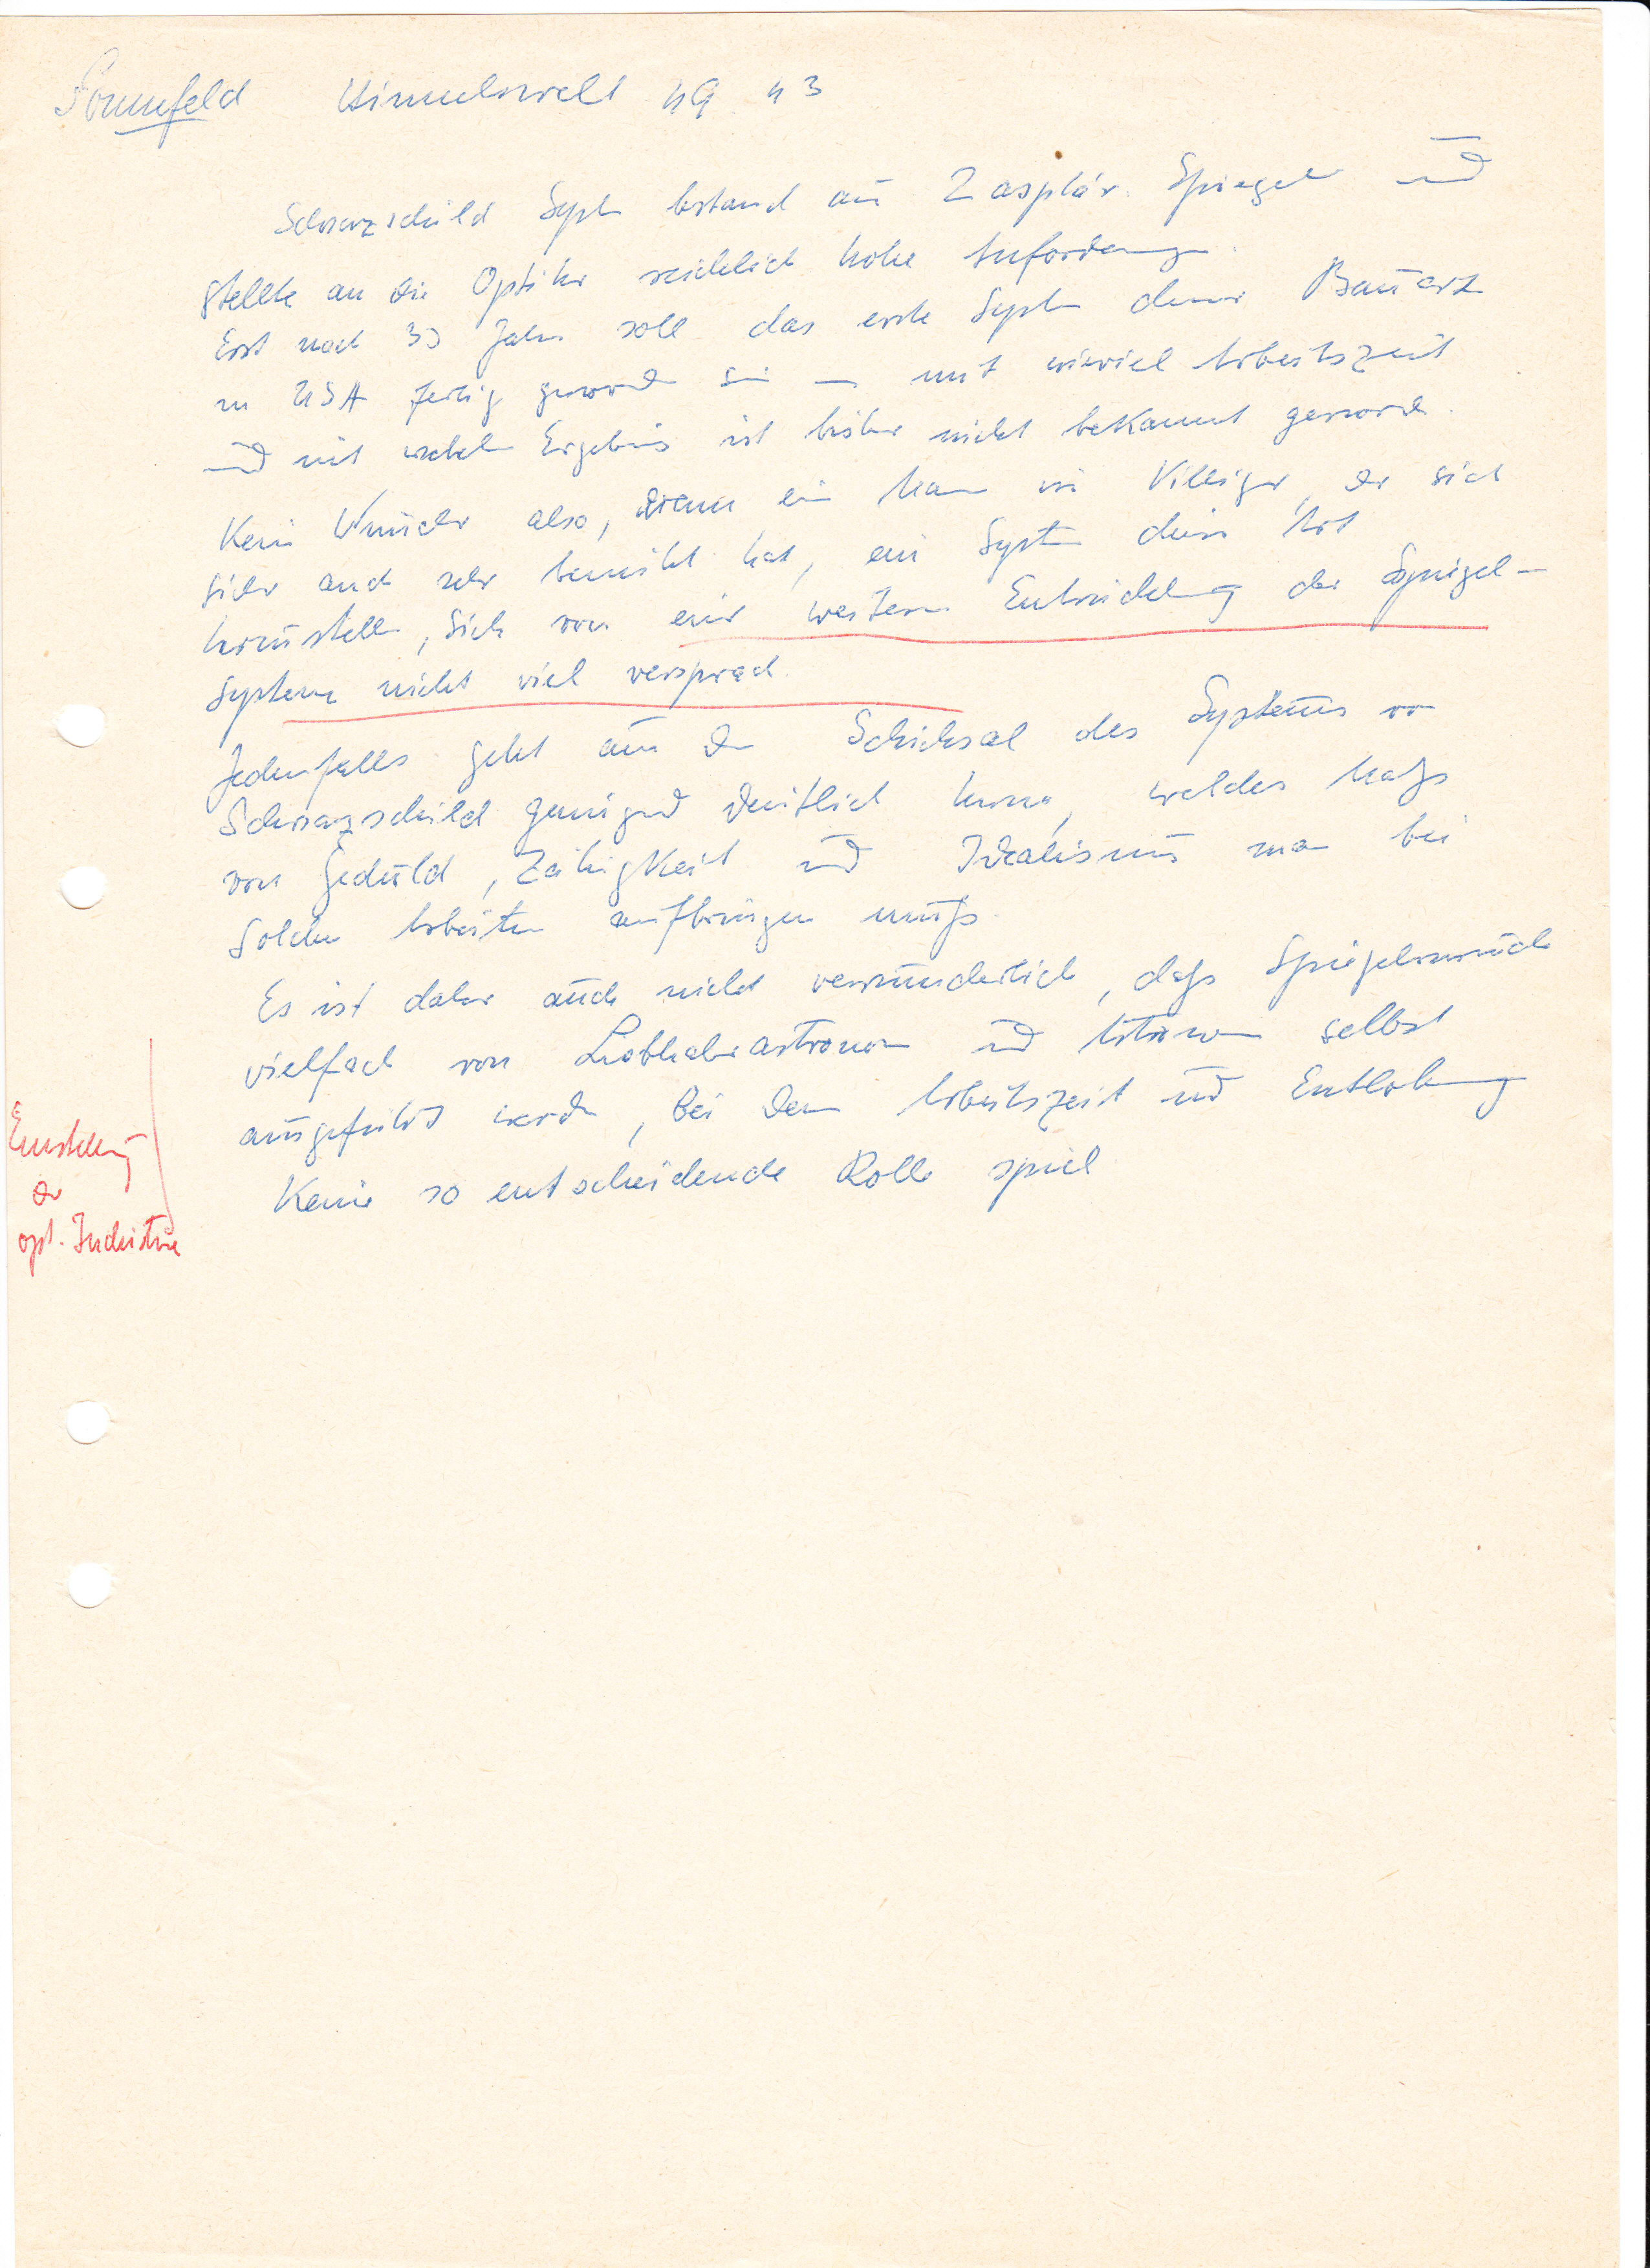 Sonnefeld Himmelswelt 49 43
Schwarzschild System bestand aus 2 asphär. Spiegel und
stellte an die Optiker reichlich hohe Anforderung.
Erst nach 30 Jahr soll das erste System dieser Bauart
in USA fertig geworden sein – mit wieviel Arbeitszeit
und mit welchem Ergebnis ist bisher nicht bekannt geworden.
Kein Wunder also, wenn ein Mann wie Villiger, der sich
sicher auch sehr bemüht hat, ein System dieser Art
herzustellen, sich von einer weiteren Entwicklung der Spiegel-
systeme nicht viel versprach.
Jedenfalls geht aus dem Schicksal des Systems von
Schwarzschild genügend deutlich hervor, welches Maß
von Geduld, Zähigkeit und Idealismus man bei
solchen Arbeiten aufbringen muß.
Es ist daher auch nicht verwunderlich, daß Spiegelversuche
vielfach von Liebhaberastronomen und Astronomen selbst
ausgeführt werden, bei denen Arbeitszeit und Entlohnung
keine so entscheidende Rolle spiel
Einstellung
der
opt. Industrie